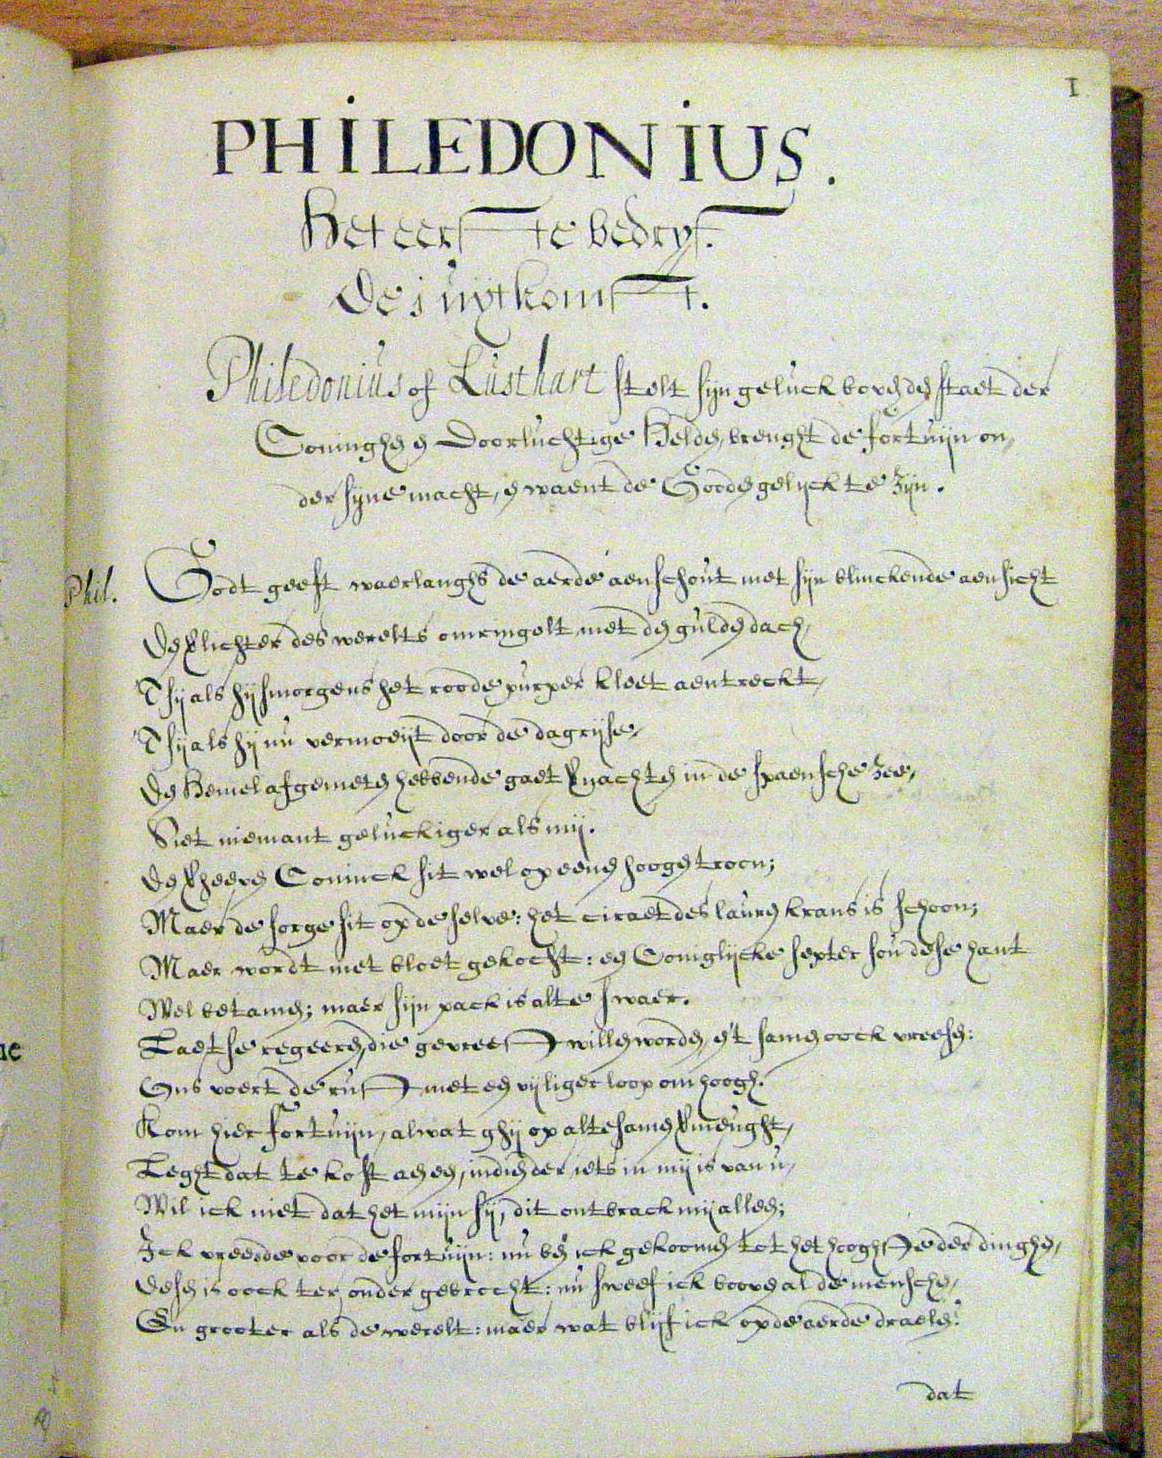 1
PHILEDONIUS.
Het eerste bedryf.
De 1 uytkomst.
Philedonius of Lusthart stelt sijn geluck boven den staet der
Coninghen en Doorluchtige Helden, brenght de fortuijn on,
der sijne macht, en waent de Goden gelyck te zijn.
Phil. Godt geeft waerlanghs de aerde aenschout met sijn blinckende aensicht
Den lichter des werelts omringelt met den gulden dach,
'T sij als hij smorgens het roode purper kleet aentreckt,
'T sij als hij nu vermoeijt door de dagrijse,
Den Hemel afgemeten hebbende gaet vernachten in de spaensche zee,
Siet niemant geluckiger als mij.
Den verheeven Coninck sit wel op eenen hoogen troon;
Maer de sorge sit op de selve: het ciraet des lauren krans is schoon;
Maer wordt met bloet gekocht: een Coniglijcke septer sou dese hant
Wel betamen; maer sijn pack is al te swaer.
Laet se regeeren, die gevreest willen worden, en 't samen oock vreesen:
Ons voert de rust met een vijliger loop om hoogh.
Kom hier fortuijn, alwat ghij op al te samen vermeught,
Leght dat te kost aen een, indien der iets in mij is van u,
Wil ick niet dat het mijn sij, dit ontbrack mij alleen;
Ick vreesde voor de fortuijn: nu ben ick gekoomen tot het hooghste der dinghen,
desen is oock ter onder gebrocht: nu sweef ick boven al de menschen,
En grooter als de werelt: maer wat blijf ick op de aerde draelen?
dat